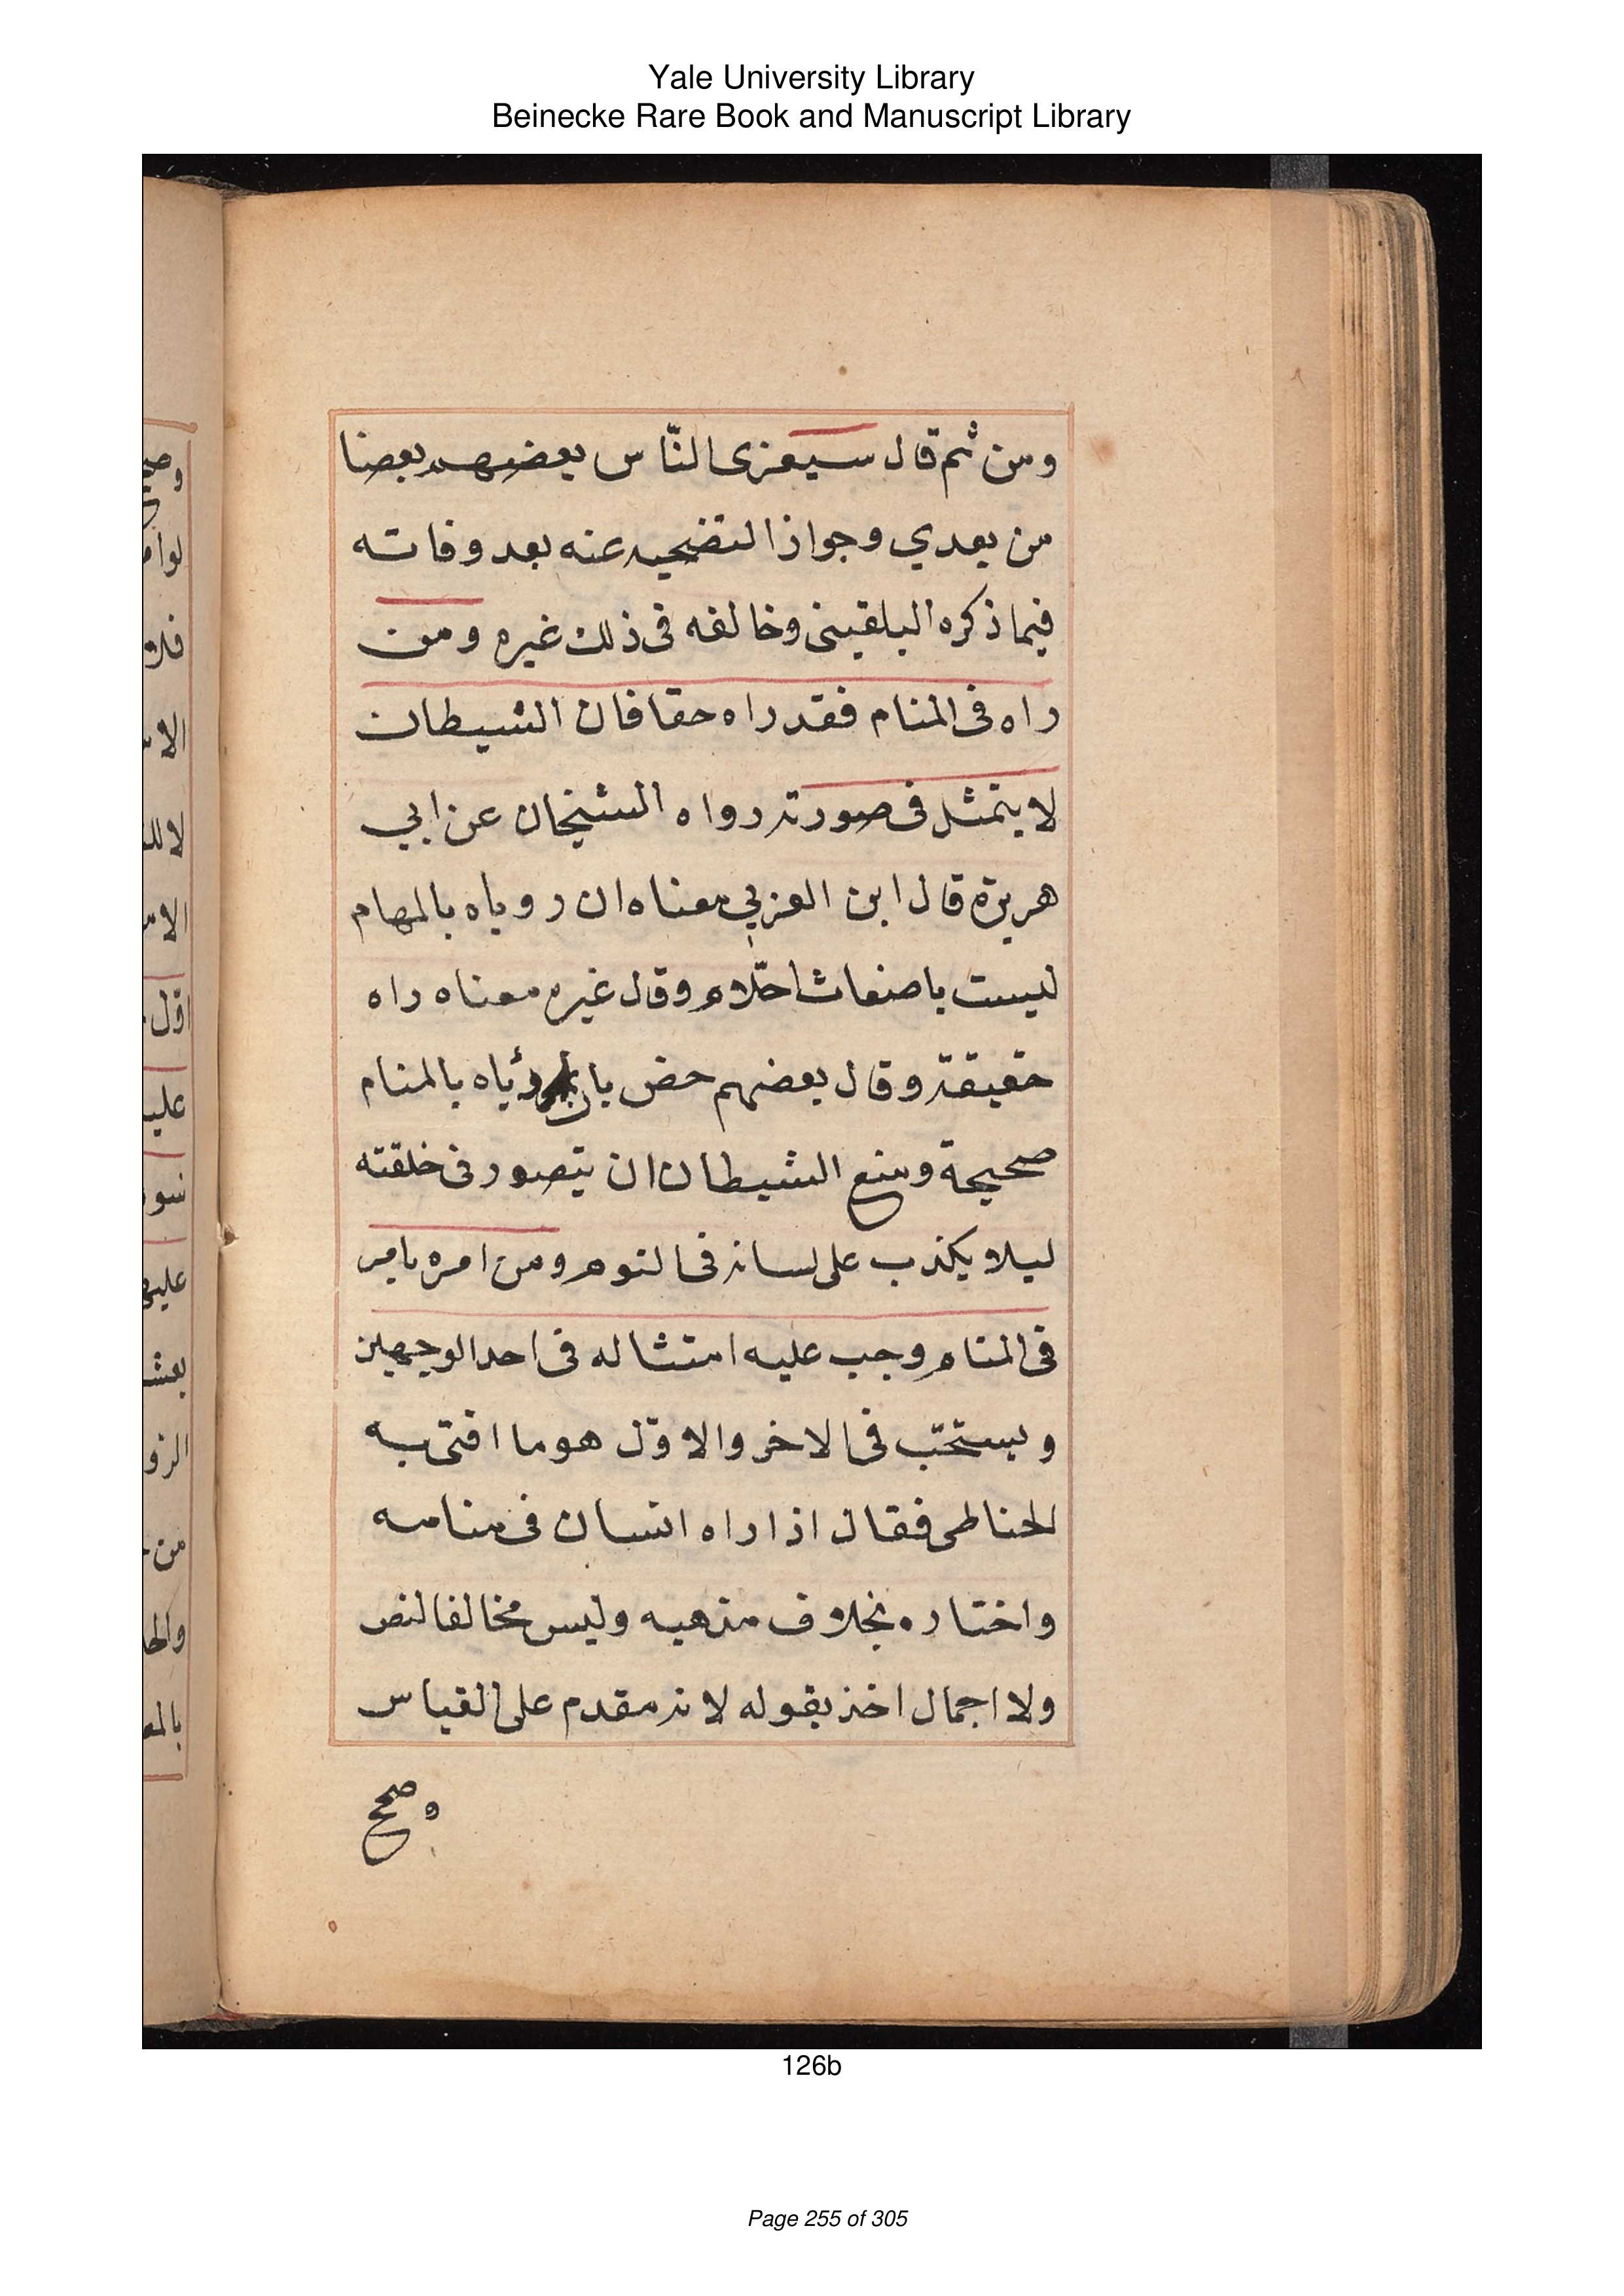 Yale University Library
Beinecke Rare Book and Manuscript Library
ومن ثم قال سيعزى النّاس بعضهم بعضا
من بعدي وجواز التضحيه عنه بعد وفاته
فيما ذكره البلقينى وخالفه فى ذلك غيره ومن
راه فى المنام فقد راه حقا فان الشيطان
لا يتمثل فى صورته رواه الشيخان عن ابي
هريرة قال ابن العربي معناه ان روياه بالمهام
ليست باضغاث احلّام وقال غيره معناه راه
حقيقة وقال بعضهم خص بان رؤياه بالمنام
صحيحة ومنع الشيطان ان يتصور فى خلقته
ليلا يكذب على لسانه فى النوم ومن امره بامر
فى المنام وجب عليه امتثاله فى احد الوجهين
ويستحبّ فى الاخر والاوّل هو ما افتى به
الحناطى فقال اذا راه انسان فى منامه
واختاره بخلاف مذهبه وليس مخالفا لنص
ولا اجمال اخذ بقوله لانه مقدم على القياس
وصحح
126b
Page 255 of 305